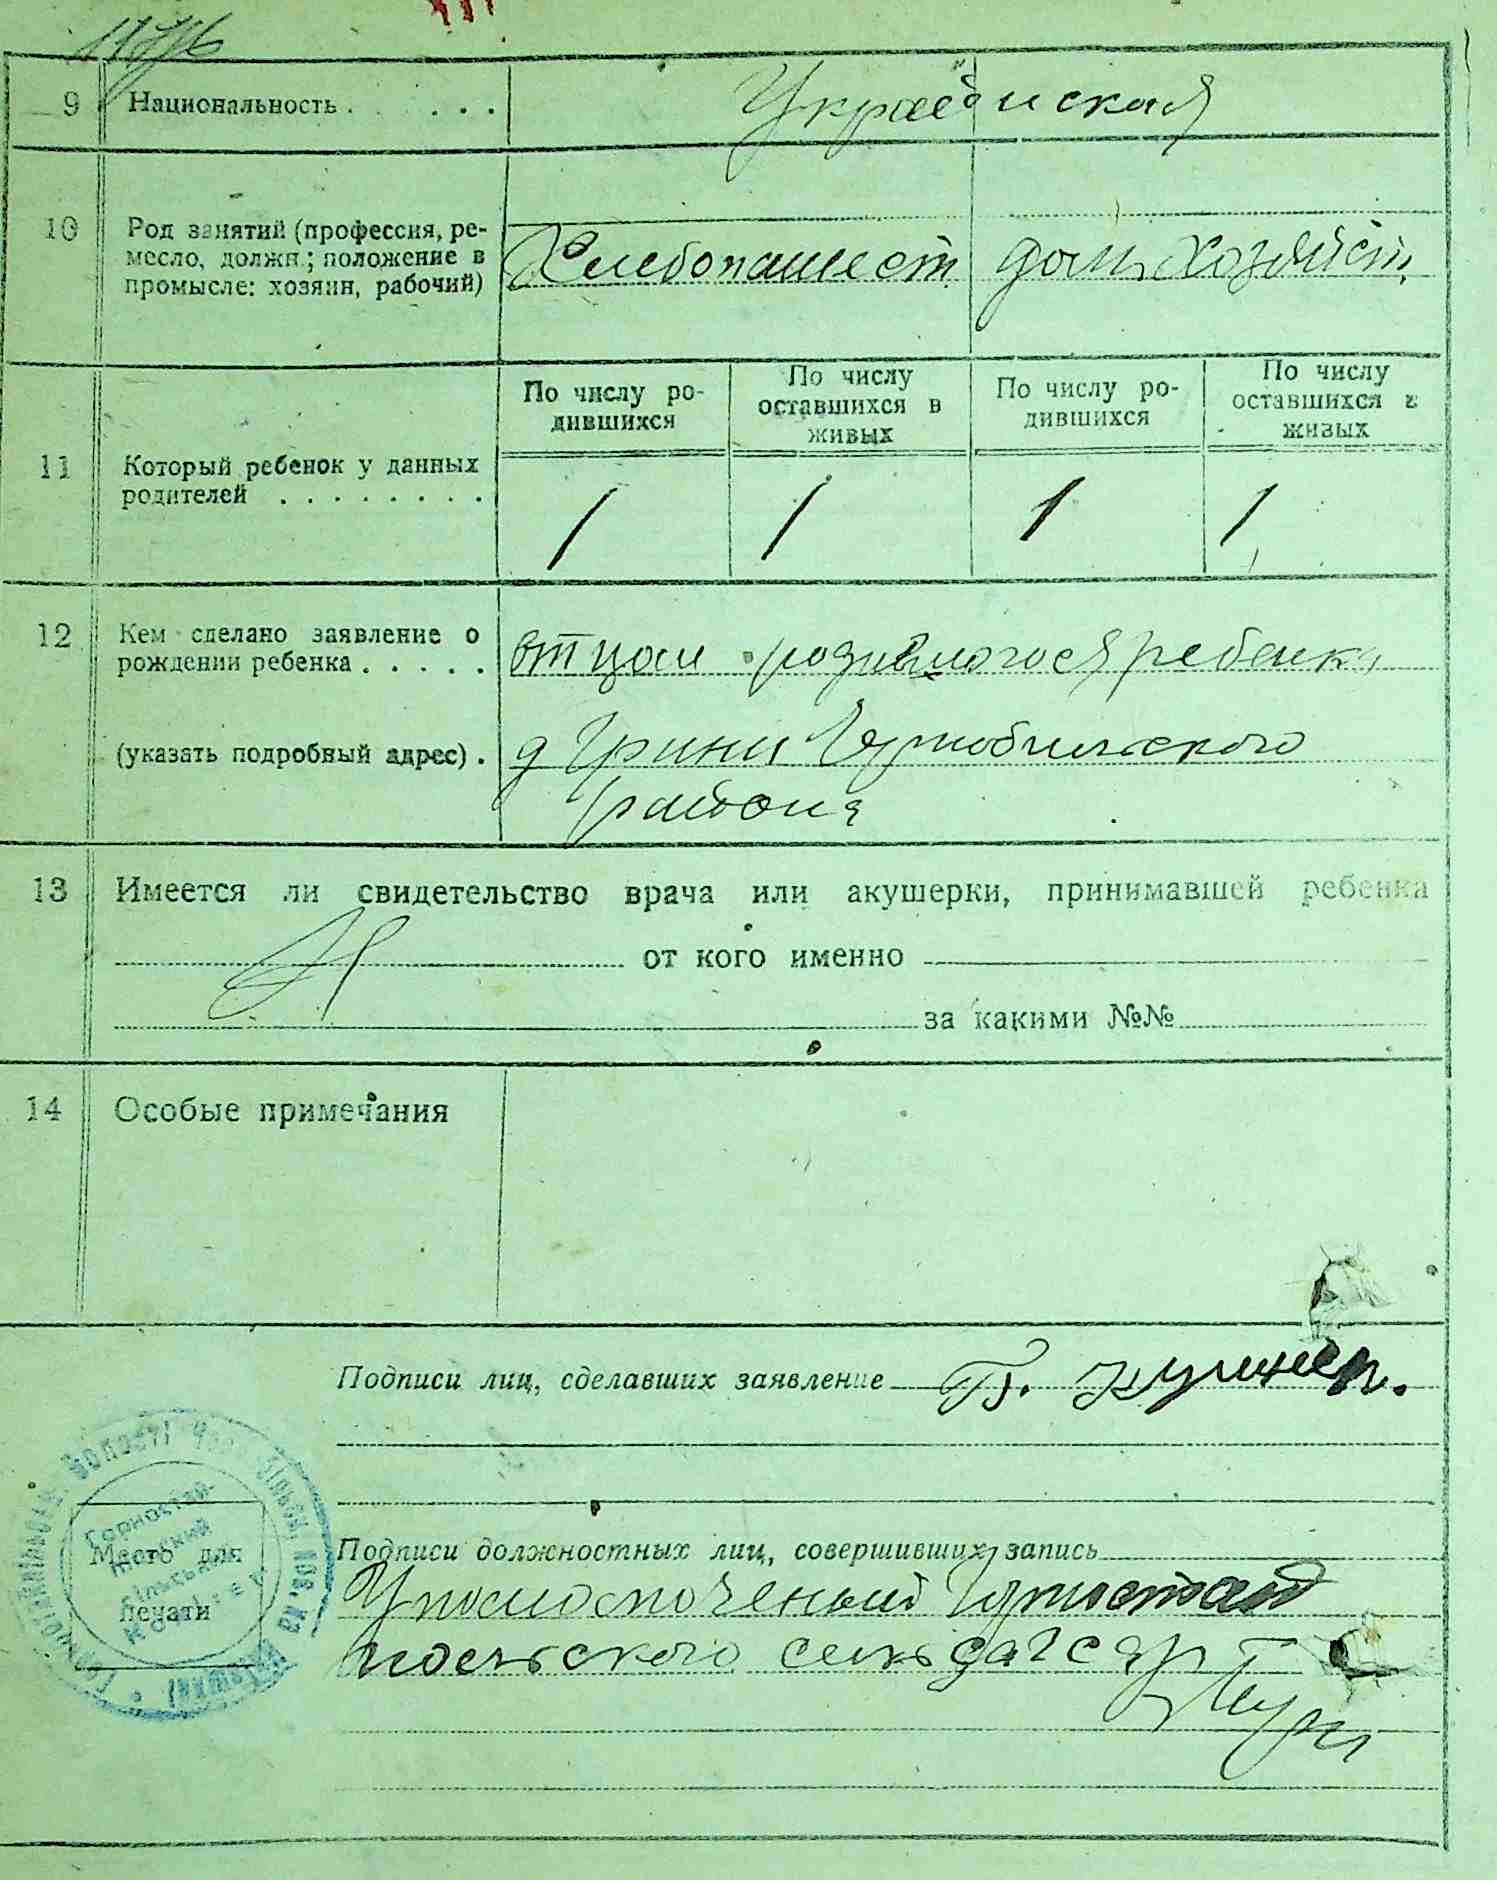 9 Национальность . . . . Украинская
10 Род занятий (профессия, ре-
месло, должн.; положение в
промысле: хозяин, рабочий)
Хлебопашест дом. хозяйст.
По числу ро-
дившихся
По числу
оставшихся в
живых
По числу ро-
дившихся
По числу
оставшихся в
живых
11 Который ребенок у данных
родителей . . . . . . . .
1 1 1 1
12 Кем сделано заявление о
рождении ребенка . . . . .
отцом родившогося ребенка
(указать подробный адрес) .
д Грини Чернобильского
района
13 Имеется ли свидетельство врача или акушерки, принимавшей ребенка
от кого именно
за какими №№
14 Особые примечания
Подписи лиц, сделавших заявление Г. Кушнер.
Подписи должностных лиц, совершивших запись
Место для
печати
Уполномоченый Горностай
польского сельзагса